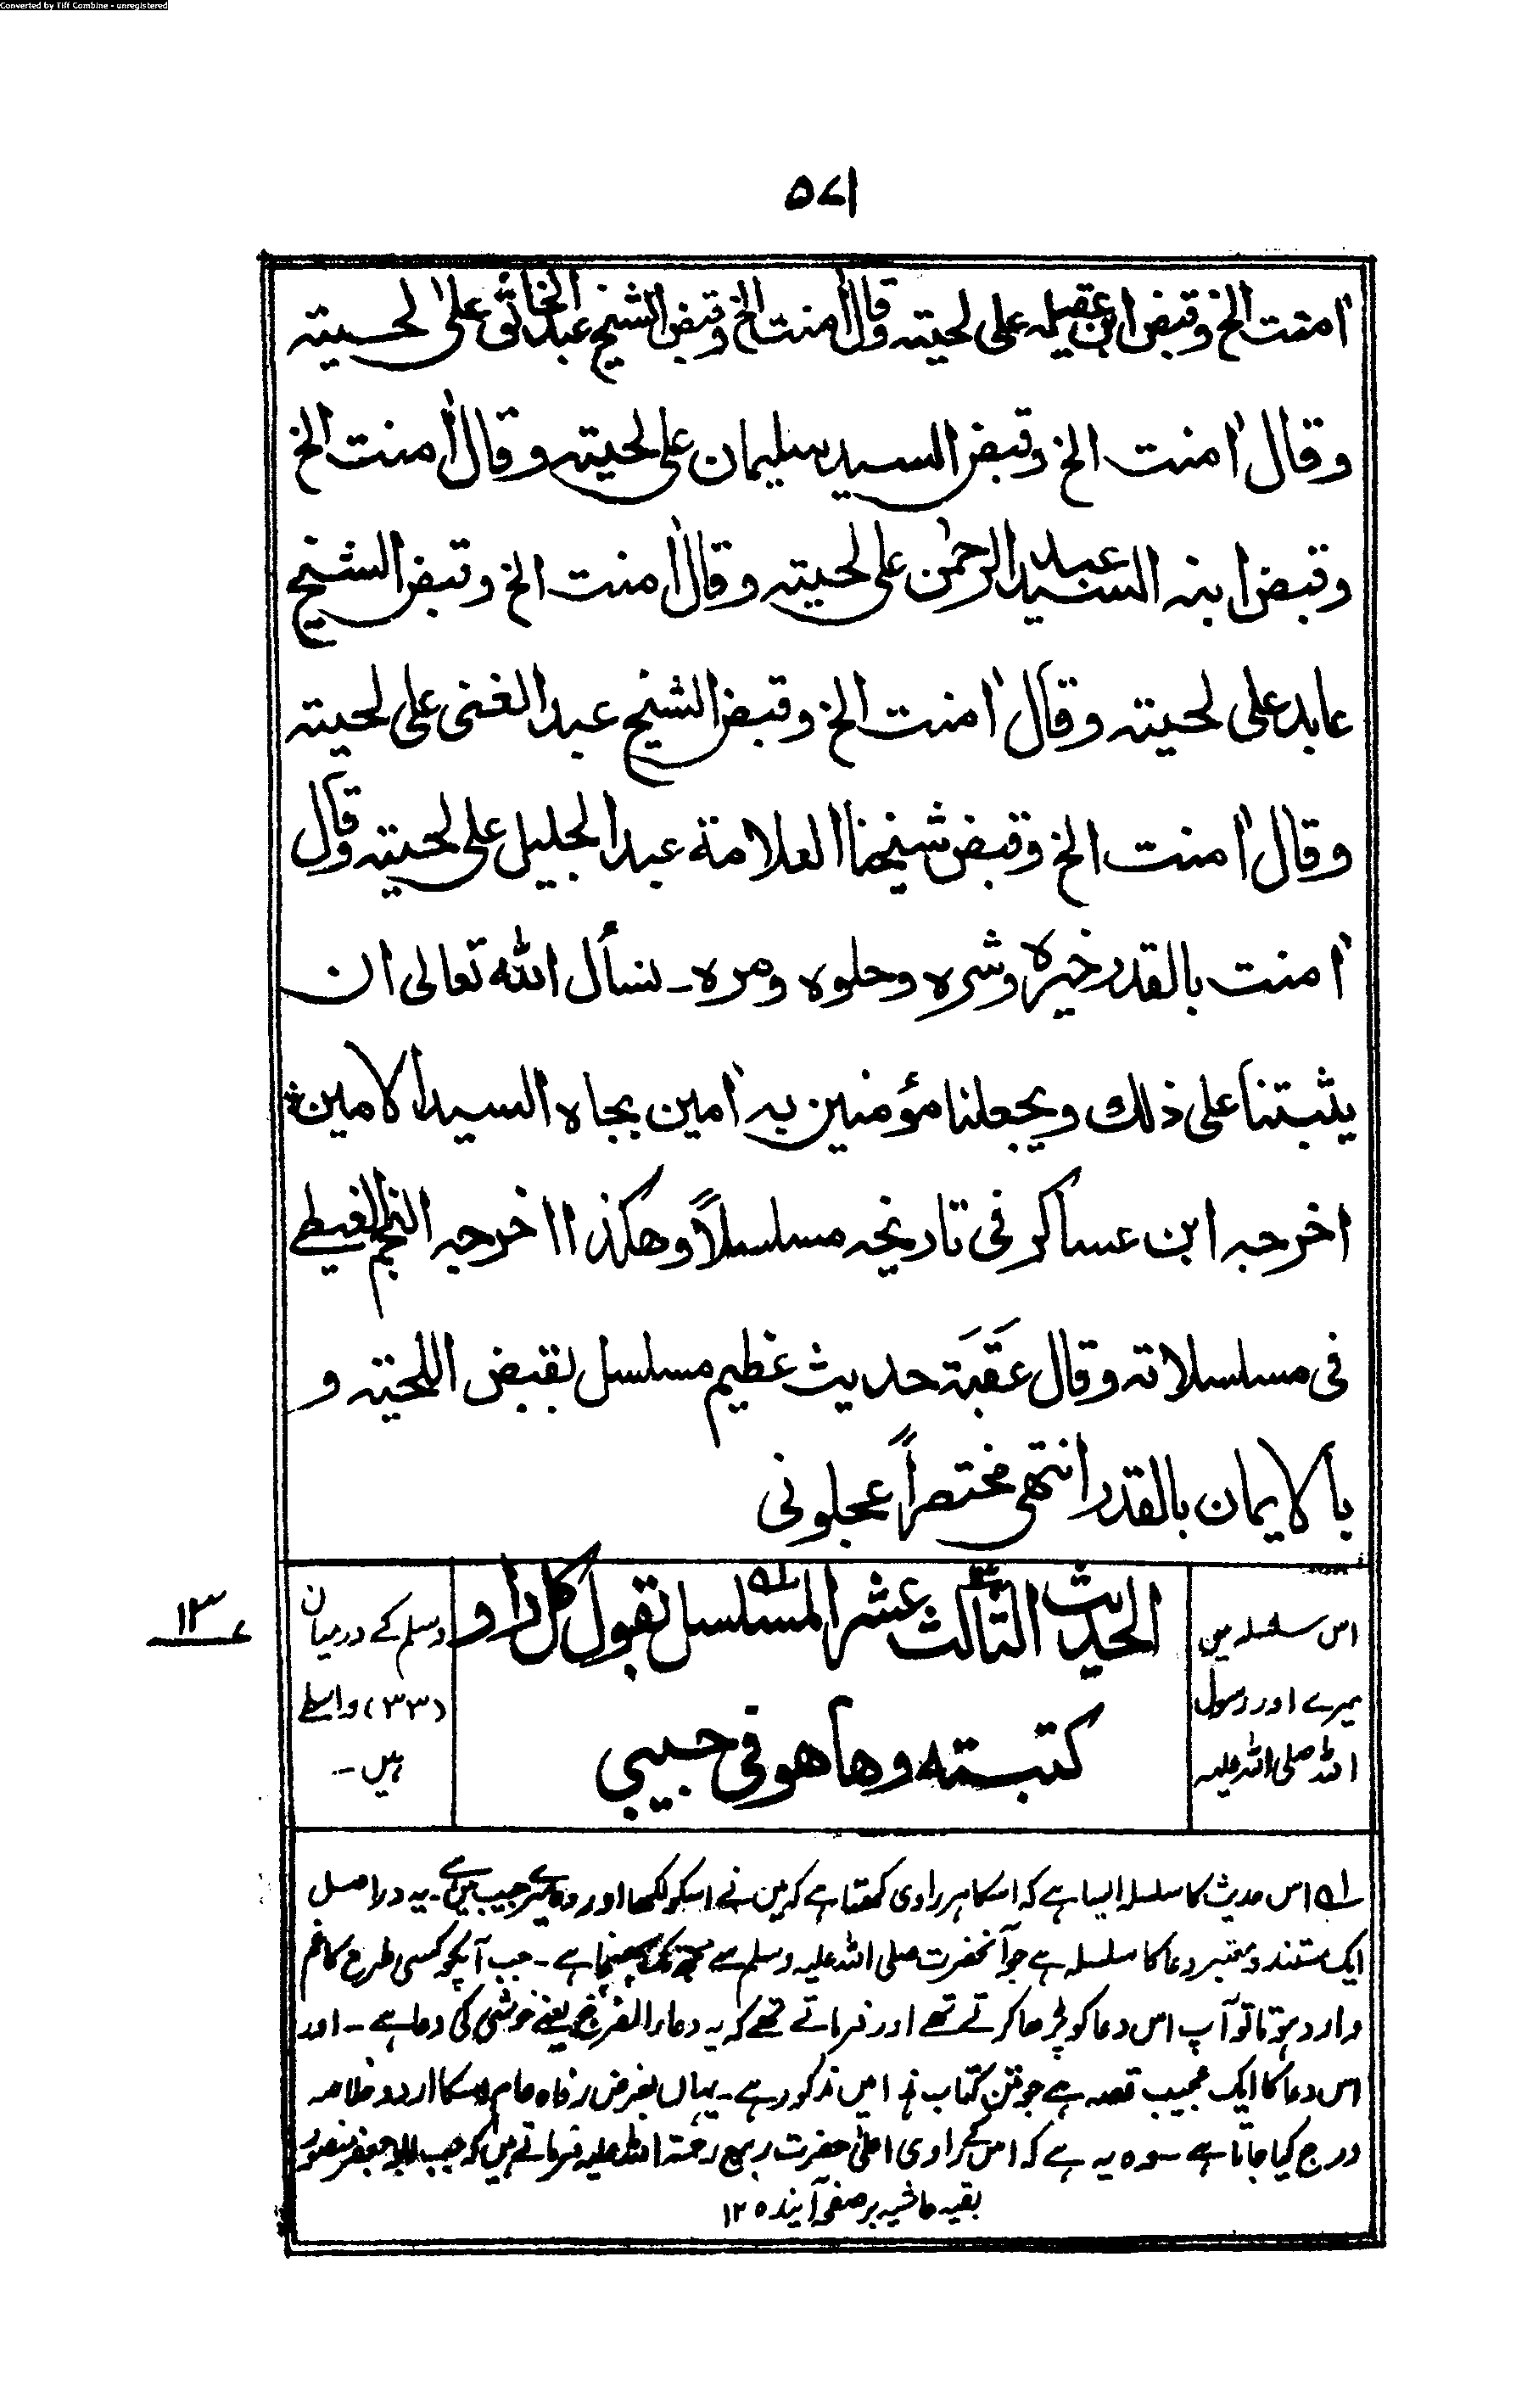 Converted by Tiff Combine - unregistered
۵۷۱
اٰمنت الخ وقبض ابن عقيله على لحيته وقال اٰمنت الخ وقبض الشيخ عبد الخالق على لحيته
وقال اٰمنت الخ وقبض السيد سليمان على لحيته وقال اٰمنت الخ
وقبض ابنه السيد عبد الرحمٰن على لحيته وقال اٰمنت الخ وقبض الشيخ
عابد على لحيته وقال اٰمنت الخ وقبض الشيخ عبد الغنى على لحيته
وقال اٰمنت الخ وقبض شيخنا العلامة عبد الجليل على لحيته وقال
اٰمنت بالقدر خيره وشره وحلوه ومره ـ نسأل الله تعالى ان
يثبتنا على ذلك ويجعلنا مؤمنين به اٰمين بجاه السيد الامين
اخرجه ابن عساكر فى تاريخه مسلسلاً وهكذا اخرجه النجم الغيطى
فى مسلسلاته وقال عَقَبَة حديث عظيم مسلسل بقبض اللحيته و
بالايمان بالقدر انتهى مختصراً عجلونى
الحديث الثالث عشر المسلسل بقول كل راو
كتبته وها هو فى جيبى
اس سلسله میں
میرے اور رسول
اللہ صلی اللہ علیہ
وسلم کے درمیان
(۳۳) واسطے
ہیں ۔
۱۳ ع
لہ اس حدیث کا سلسلہ ایسا ہے کہ اسکا ہر راوی کہتا ہے کہ میں نے اسکو لکھا اور وہ میرے جیب میں ہے ۔ یہ دراصل
ایک مستند و معتبر دعا کا سلسلہ ہے جو آنحضرت صلی اللہ علیہ وسلم سے مجھ تک پہنچا ہے ۔ جب آپکو کسی طرح کا غم
وارد ہوتا تو آپ اس دعا کو پڑھا کرتے تھے اور فرماتے تھے کہ یہ دعاء الفرج یعنے خوشی کی دعا ہے ۔ اور
اس دعا کا ایک عجیب قصہ ہے جو متن کتاب ہذا میں مذکور ہے ۔ یہاں بغرض رفاہ عام اسکا اردو خلاصہ
درج کیا جاتا ہے سو وہ یہ ہے کہ اس کے راوی اعلیٰ حضرت ربیع رحمۃ اللہ علیہ فرماتے ہیں کہ جب ابو جعفر منصور
بقیہ حاشیہ بر صفحہ آیندہ ۱۲